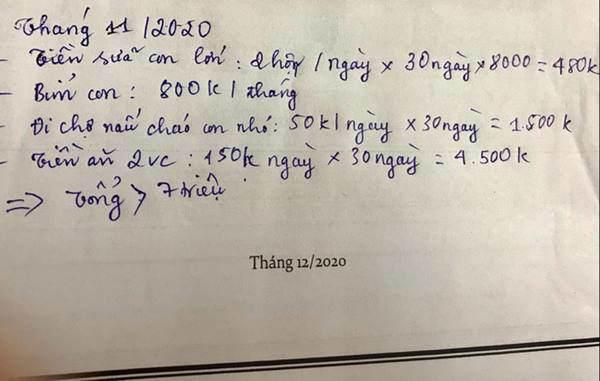 Tháng 11/2020
- Tiền sữa con lớn: 2 hộp / ngày x 30 ngày x 8000 = 480k
- Bỉm con: 800k / tháng
- Đi chợ nấu cháo con nhỏ: 50k / ngày x 30 ngày = 1.500k
- Tiền ăn 2vc: 150k ngày x 30 ngày = 4.500k
=> Tổng > 7 triệu.
Tháng 12/2020